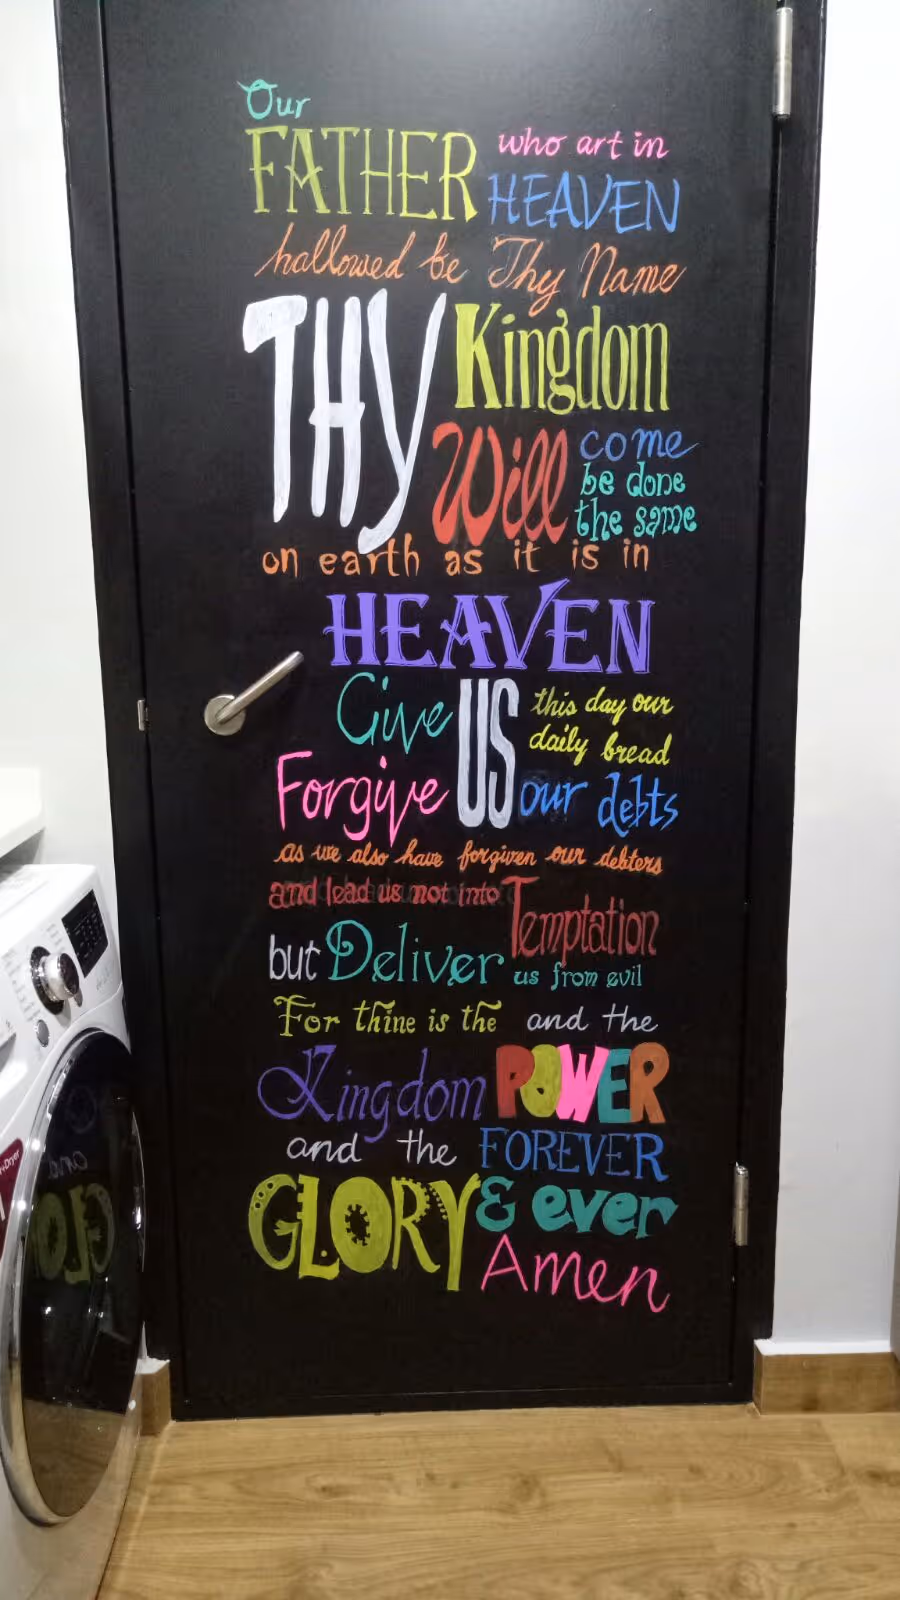 Our
FATHER who art in
HEAVEN
hallowed be Thy Name
THY Kingdom
Will come
be done
the same
on earth as it is in
HEAVEN
Give US this day our
daily bread
Forgive our debts
as we also have forgiven our debters
and lead us not into Temptation
but Deliver us from evil
For thine is the and the
Kingdom POWER
and the FOREVER
GLORY & ever
Amen